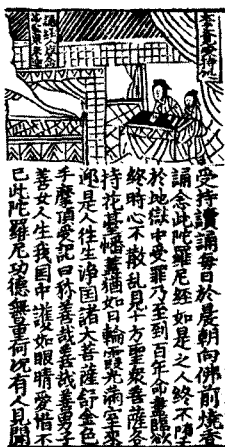 受持讀誦每日於晨朝向佛前燒香
誦念此陀羅尼經如是之人終不墮
於地獄中受罪乃至到百年命盡臨欲
終時心不散亂見十方聖衆菩薩各
持花臺幡蓋猶如日輪霞光滿室來
迎是人往生淨国諸大菩薩舒金色
手摩頂受記曰称善哉善哉善男子
善女人生我国中護如眼睛愛惜不
已此陀羅尼功德無量何况有人見聞